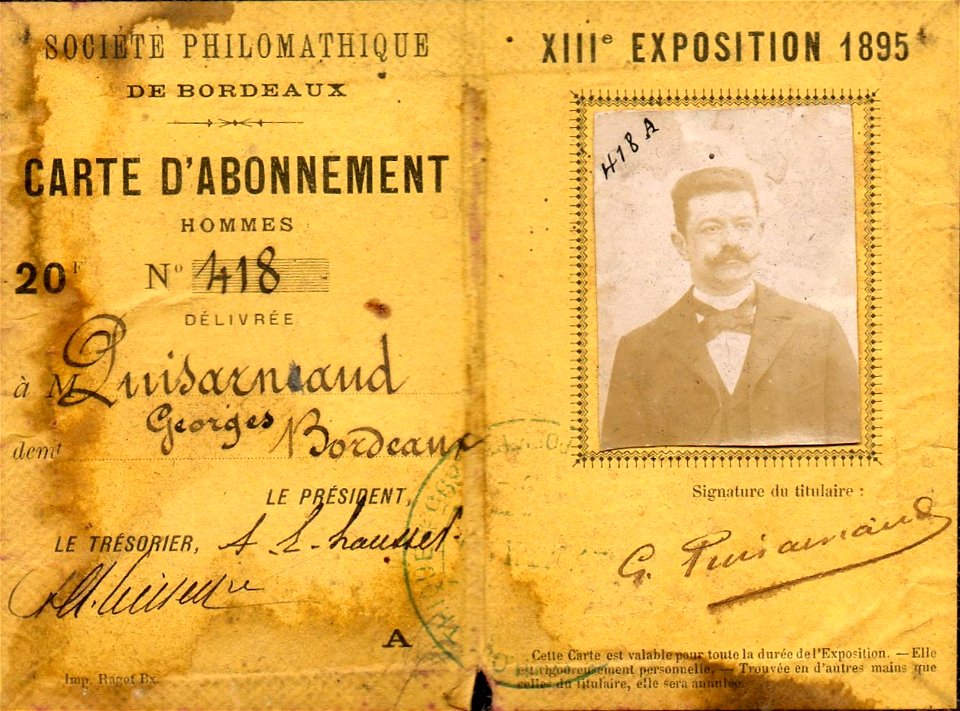 SOCIÉTÉ PHILOMATHIQUE
DE BORDEAUX
CARTE D'ABONNEMENT
HOMMES
20F N° 418
DÉLIVRÉE
à M Puisarnaud
Georges
demt Bordeaux
LE PRÉSIDENT,
LE TRÉSORIER,
A
Imp. Ragot Bx.
XIIIe EXPOSITION 1895
418 A
Signature du titulaire :
G. Puisarnaud
Cette Carte est valable pour toute la durée de l'Exposition. — Elle
est rigoureusement personnelle. — Trouvée en d'autres mains que
celles du titulaire, elle sera annulée.